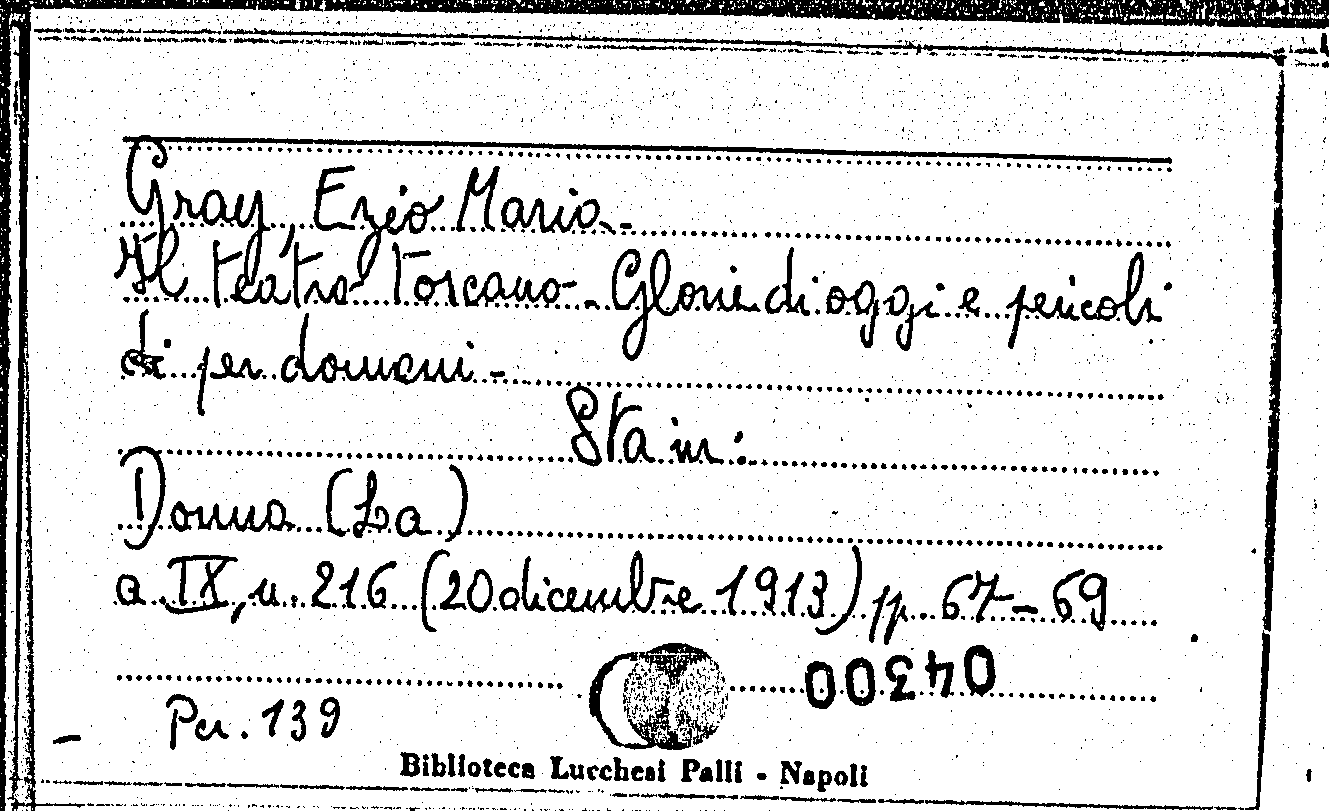 Gray, Ezio Maria.-
Il teatro Toscano-. Glorie di oggi e pericoli
di per domani -
Sta in:
Donna (La)
a. IX, n. 216 (20 dicembre 1913) pp. 67-69
04300
Per. 139
Biblioteca Lucchesi Palli - Napoli